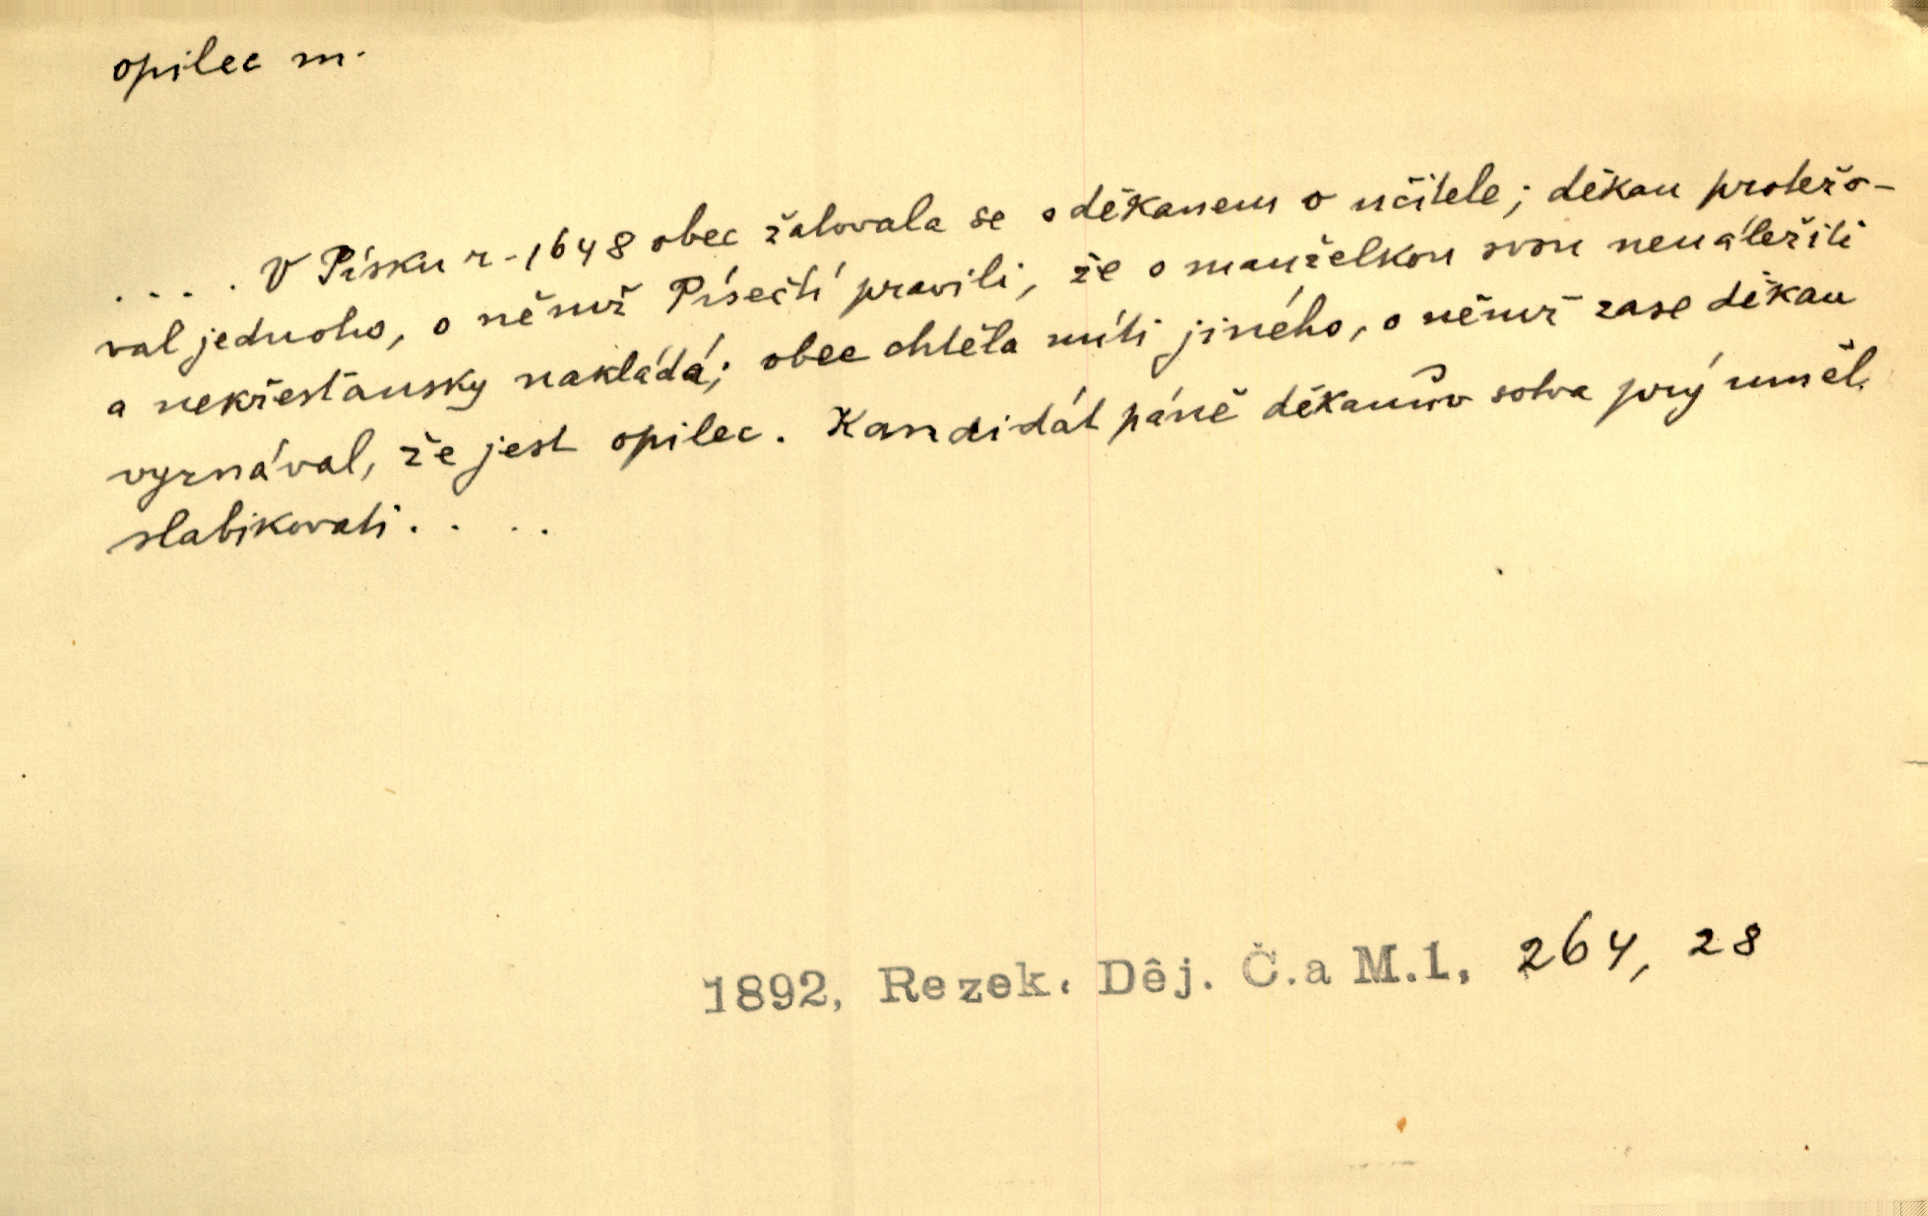 opilec m.
. . . . V Písku r. 1648 obec žalovala se s děkanem o učitele; děkan protežo-
val jednoho, o němž Písečtí pravili, že s manželkou svou nenáležitě
a nekřesťansky nakládá; obec chtěla míti jiného, o němž zase děkan
vyznával, že jest opilec. Kandidát páně děkanův sotva prý uměl
slabikovati . . . .
1892, Rezek. Děj. Č.a M.1, 264, 28